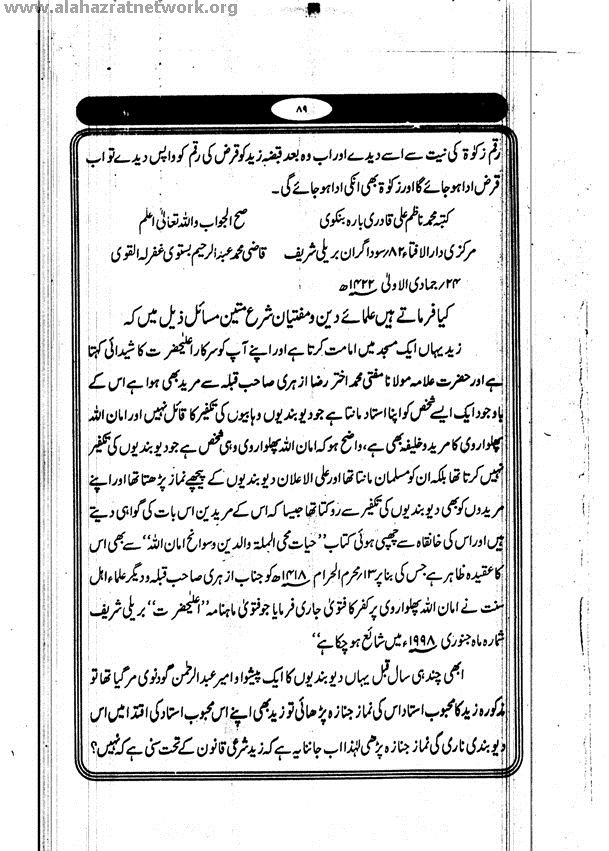 www.alahazratnetwork.org
۸۹
رقم زکوٰۃ کی نیت سے اسے دیدے اور اب وہ بعد قبضہ زید کو قرض کی رقم کو واپس دیدے تو اب
قرض ادا ہو جائے گا اور زکوٰۃ بھی انکی ادا ہو جائے گی۔
کتبہ محمد ناظم علی قادری بارہ بنکوی صح الجواب واللہ تعالیٰ اعلم
مرکزی دارالافتاء ۸۲/سوداگران بریلی شریف قاضی محمد عبدالرحیم بستوی غفرلہ القوی
۲۴/جمادی الاولیٰ ۱۴۲۲ھ
کیا فرماتے ہیں علمائے دین و مفتیان شرع متین مسائل ذیل میں کہ
زید یہاں ایک مسجد میں امامت کرتا ہے اور اپنے آپ کو سرکار اعلیٰحضرت کا شیدائی کہتا
ہے اور حضرت علامہ مولانا مفتی محمد اختر رضا ازہری صاحب قبلہ سے مرید بھی ہوا ہے اس کے
باوجود ایک ایسے شخص کو اپنا استاد مانتا ہے جو دیوبندیوں وہابیوں کی تکفیر کا قائل نہیں اور امان اللہ
پھلواروی کا مرید و خلیفہ بھی ہے، واضح ہو کہ امان اللہ پھلواروی وہی شخص ہے جو دیوبندیوں کی تکفیر
نہیں کرتا تھا بلکہ ان کو مسلمان مانتا تھا اور علی الاعلان دیوبندیوں کے پیچھے نماز پڑھتا تھا اور اپنے
مریدوں کو بھی دیوبندیوں کی تکفیر سے روکتا تھا جیسا کہ اس کے مریدین اس بات کی گواہی دیتے
ہیں اور اس کی خانقاہ سے چھپی ہوئی کتاب "حیات محی الملۃ والدین و سوانح امان اللہ" سے بھی اس
کا عقیدہ ظاہر ہے جس کی بنا پر ۱۳/محرم الحرام ۱۴۱۸ھ کو جناب ازہری صاحب قبلہ و دیگر علماء اہل
سنت نے امان اللہ پھلواروی پر کفر کا فتویٰ جاری فرمایا جو فتویٰ ماہنامہ "اعلیٰحضرت" بریلی شریف
شمارہ ماہ جنوری ۱۹۹۸ء میں شائع ہو چکا ہے"
ابھی چند ہی سال قبل یہاں دیوبندیوں کا ایک پیشوا و امیر عبدالرحمٰن گودنوی مر گیا تھا تو
مذکورہ زید کا محبوب استاد اس کی نماز جنازہ پڑھائی تو زید بھی اپنے اس محبوب استاد کی اقتدا میں اس
دیوبندی ناری کی نماز جنازہ پڑھی لہٰذا اب جاننا یہ ہے کہ زید شرعی قانون کے تحت سنی ہے کہ نہیں؟